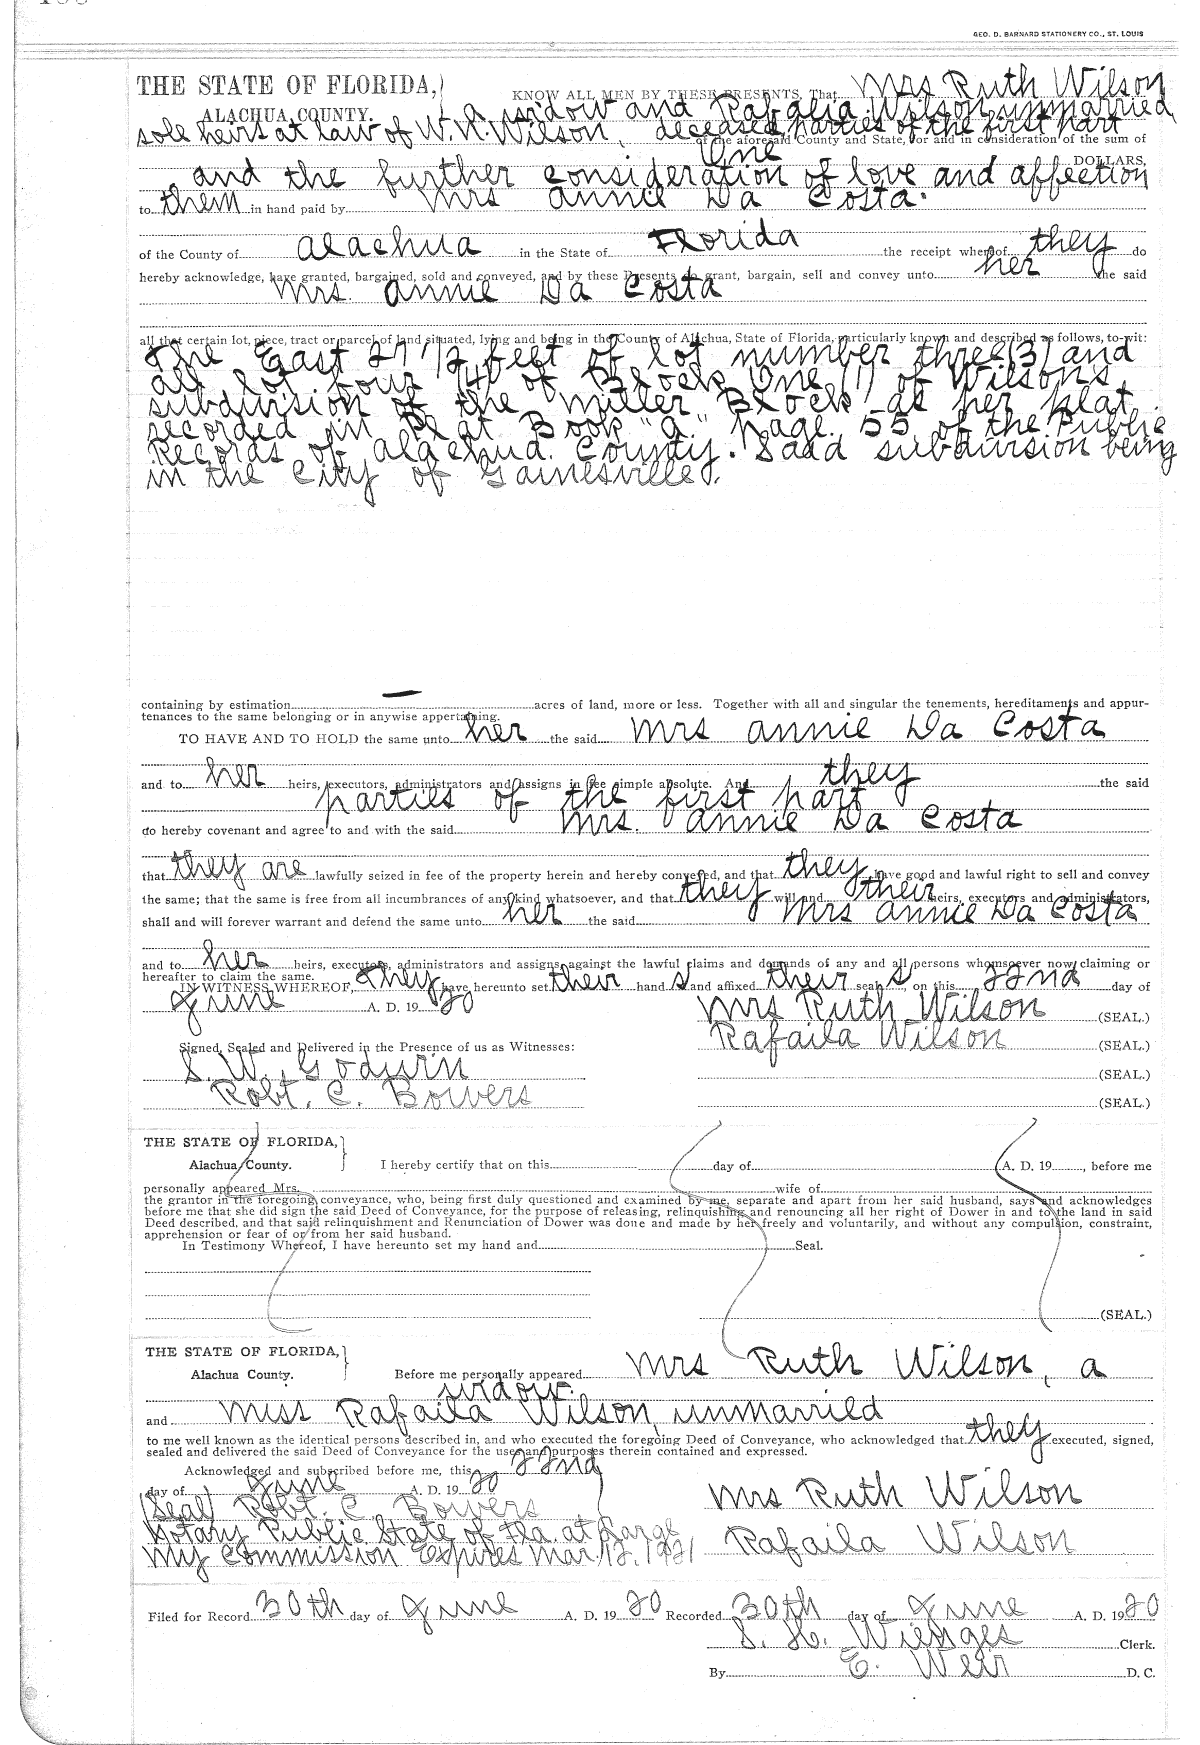 GEO. D. BARNARD STATIONERY CO., ST. LOUIS
THE STATE OF FLORIDA,
ALACHUA COUNTY.
KNOW ALL MEN BY THESE PRESENTS, That Mrs Ruth Wilson
a widow and Rafalia Wilson, unmarried,
sole heirs at law of W. N. Wilson, deceased, parties of the first part
of the aforesaid County and State, for and in consideration of the sum of
One DOLLARS,
and the further consideration of love and affection
to them in hand paid by Mrs Annie Da Costa.
of the County of Alachua in the State of Florida the receipt whereof they do
hereby acknowledge, have granted, bargained, sold and conveyed, and by these Presents do grant, bargain, sell and convey unto her the said
Mrs. Annie Da Costa
all that certain lot, piece, tract or parcel of land situated, lying and being in the County of Alachua, State of Florida, particularly known and described as follows, to-wit:
The East 27 1/2 feet of lot number three (3) and
all lot four (4) of Block One (1) of Wilsons,
subdivision of the "Miller Block" as per plat
recorded in Plat Book "A" page 55 of the Public
Records of Alachua County. Said subdivision being
in the City of Gainesville.
containing by estimation — acres of land, more or less. Together with all and singular the tenements, hereditaments and appur-
tenances to the same belonging or in anywise appertaining.
TO HAVE AND TO HOLD the same unto her the said Mrs Annie Da Costa
and to her heirs, executors, administrators and assigns in fee simple absolute. And they the said
parties of the first part
do hereby covenant and agree to and with the said Mrs. Annie Da Costa
that they are lawfully seized in fee of the property herein and hereby conveyed, and that they have good and lawful right to sell and convey
the same; that the same is free from all incumbrances of any kind whatsoever, and that they will and their heirs, executors and administrators,
shall and will forever warrant and defend the same unto her the said Mrs Annie Da Costa
and to her heirs, executors, administrators and assigns against the lawful claims and demands of any and all persons whomsoever now claiming or
hereafter to claim the same.
IN WITNESS WHEREOF, They have hereunto set their hand s and affixed their seal s, on this 22nd day of
June A. D. 1920
Mrs Ruth Wilson (SEAL.)
Rafaila Wilson (SEAL.)
Signed, Sealed and Delivered in the Presence of us as Witnesses:
S. W. Godwin (SEAL.)
Robt. C. Bowers (SEAL.)
THE STATE OF FLORIDA,
Alachua County.
I hereby certify that on this day of A. D. 19 , before me
personally appeared Mrs. wife of
the grantor in the foregoing conveyance, who, being first duly questioned and examined by me, separate and apart from her said husband, says and acknowledges
before me that she did sign the said Deed of Conveyance, for the purpose of releasing, relinquishing and renouncing all her right of Dower in and to the land in said
Deed described, and that said relinquishment and Renunciation of Dower was done and made by her freely and voluntarily, and without any compulsion, constraint,
apprehension or fear of or from her said husband.
In Testimony Whereof, I have hereunto set my hand and Seal.
(SEAL.)
THE STATE OF FLORIDA,
Alachua County.
Before me personally appeared Mrs Ruth Wilson, a
widow.
and Miss Rafaila Wilson, unmarried
to me well known as the identical persons described in, and who executed the foregoing Deed of Conveyance, who acknowledged that they executed, signed,
sealed and delivered the said Deed of Conveyance for the uses and purposes therein contained and expressed.
Acknowledged and subscribed before me, this 22nd
day of June A. D. 1920
(Seal) Robt. C. Bowers
Mrs Ruth Wilson
Notary Public State of Fla. at Large
Rafaila Wilson
My Commission Expires Mar. 12, 1921
Filed for Record 30th day of June A. D. 1920 Recorded 30th day of June A. D. 1920
S. H. Wienges Clerk.
By E. Weir D. C.